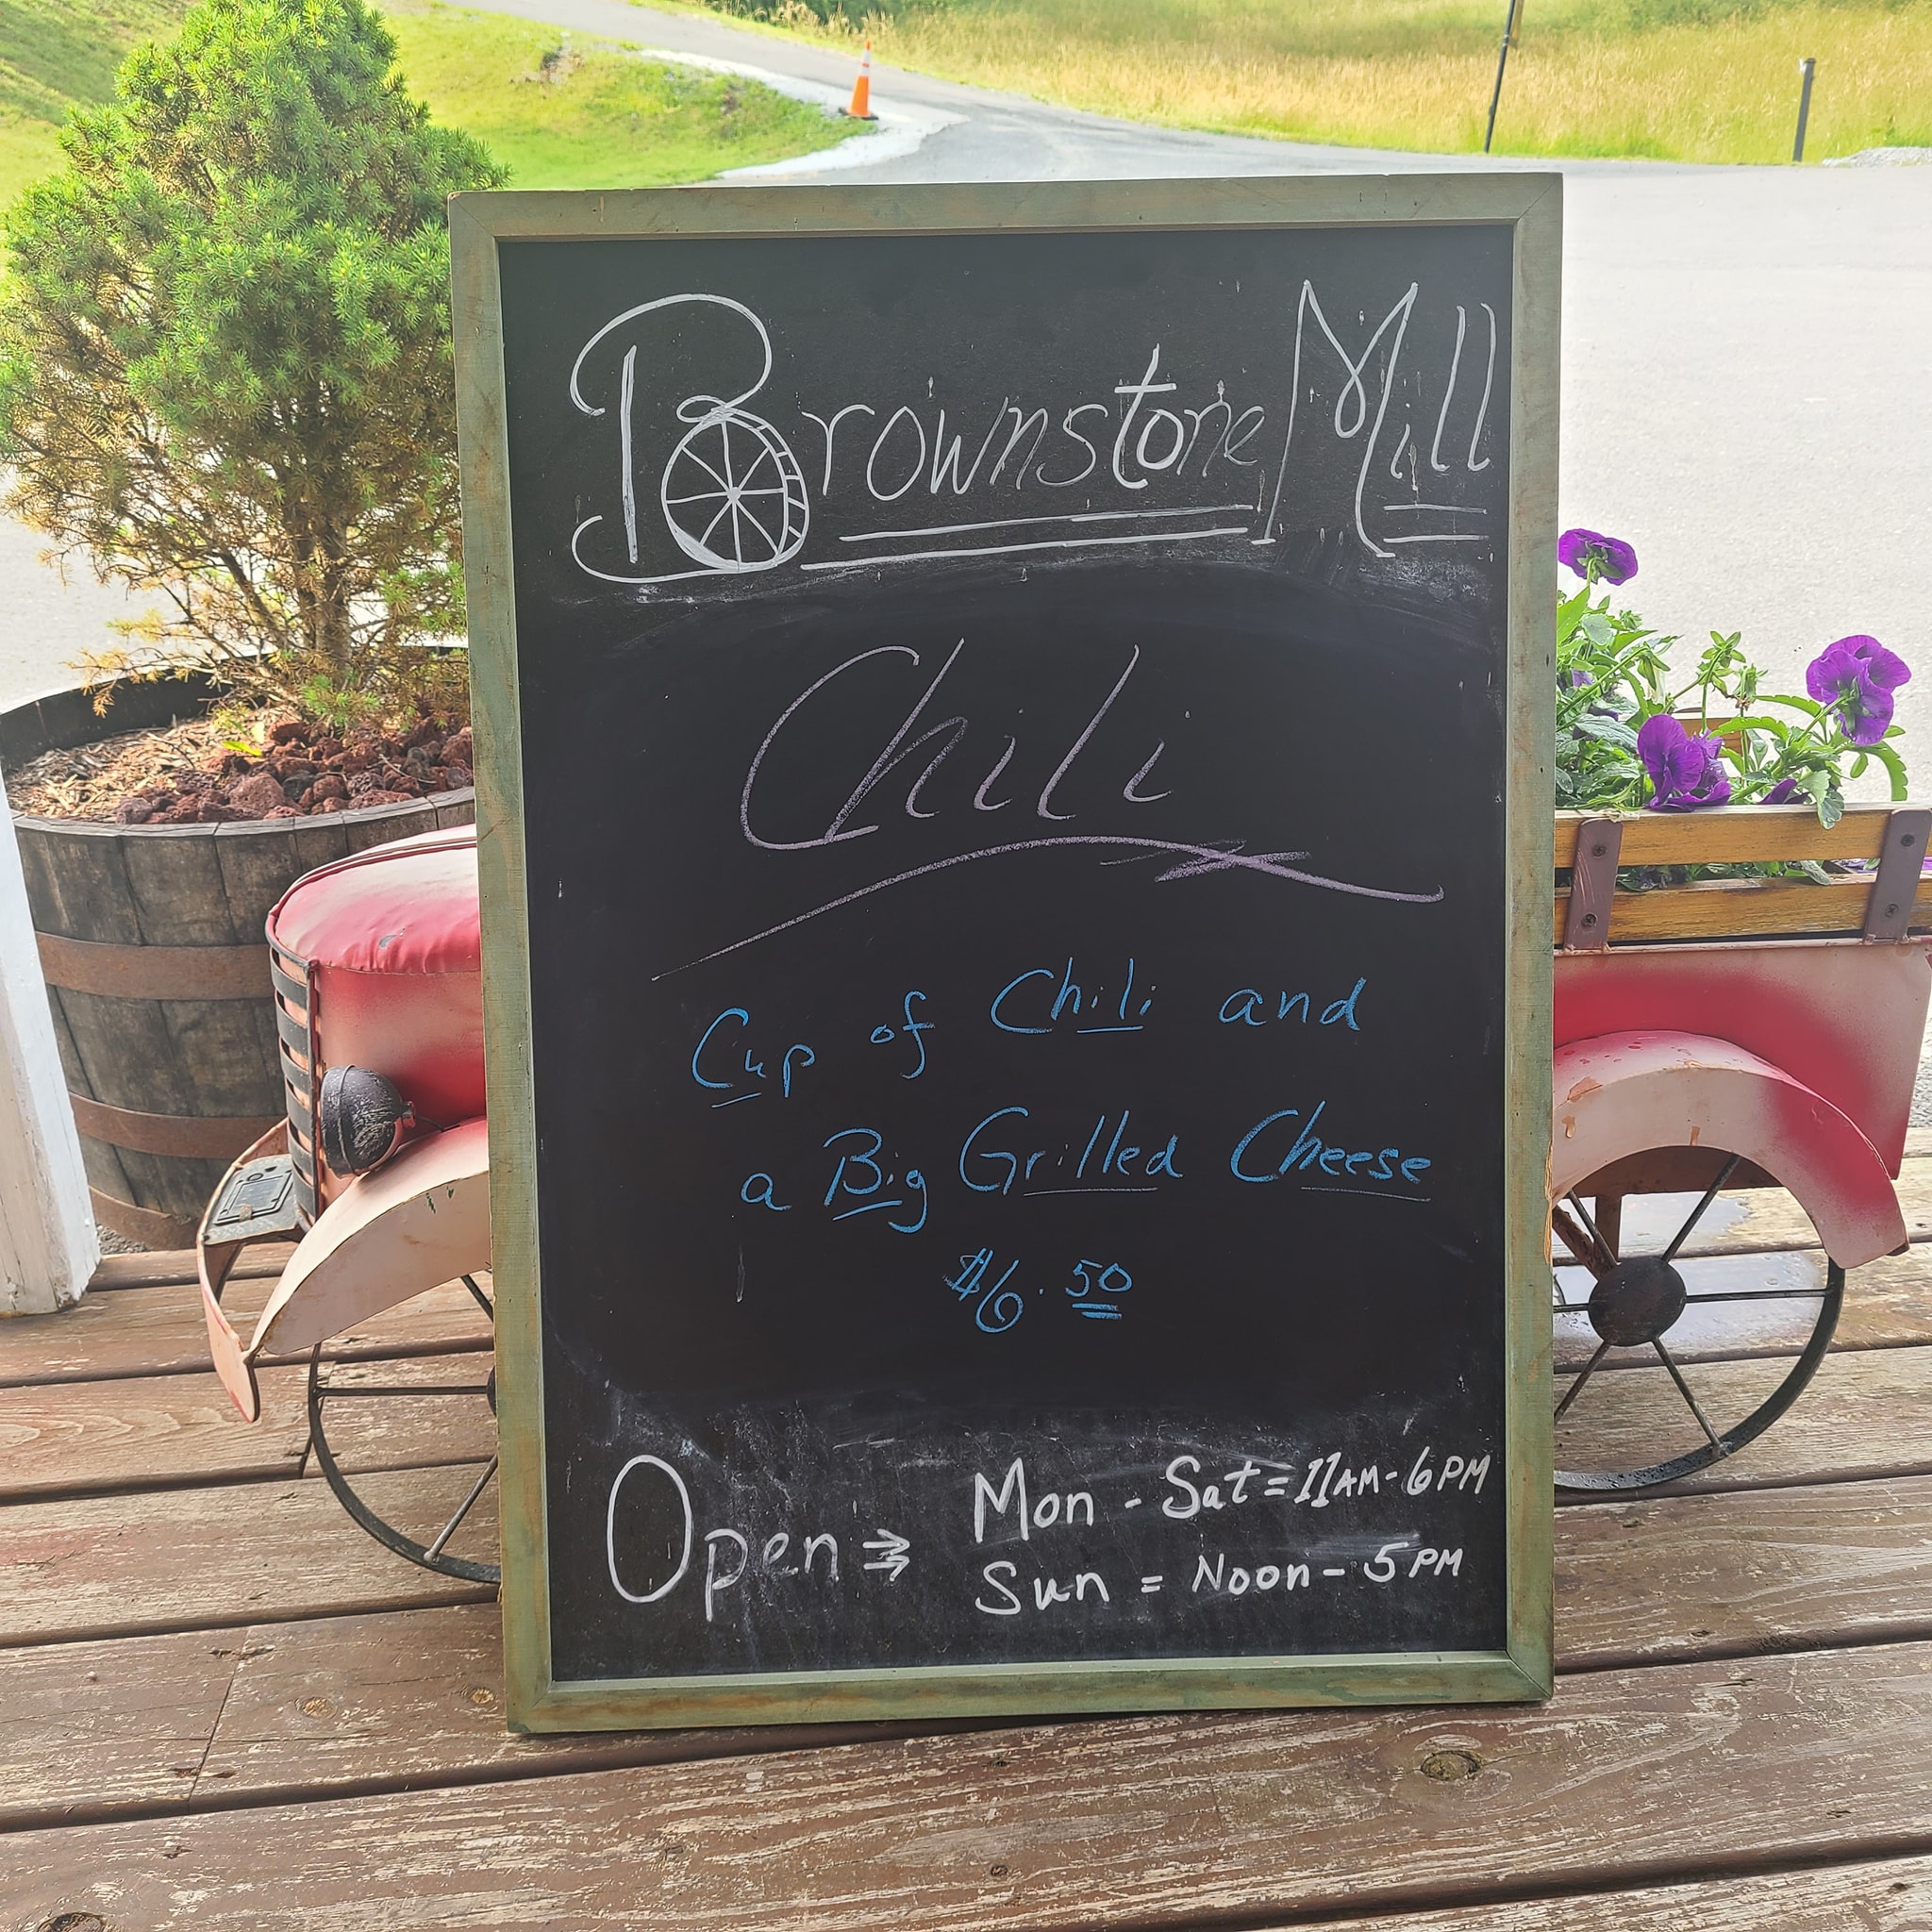 Brownstone Mill
Chili
Cup of Chili and
a Big Grilled Cheese
$6.50
Open ⇒ Mon - Sat = 11AM - 6PM
Sun = Noon - 5PM